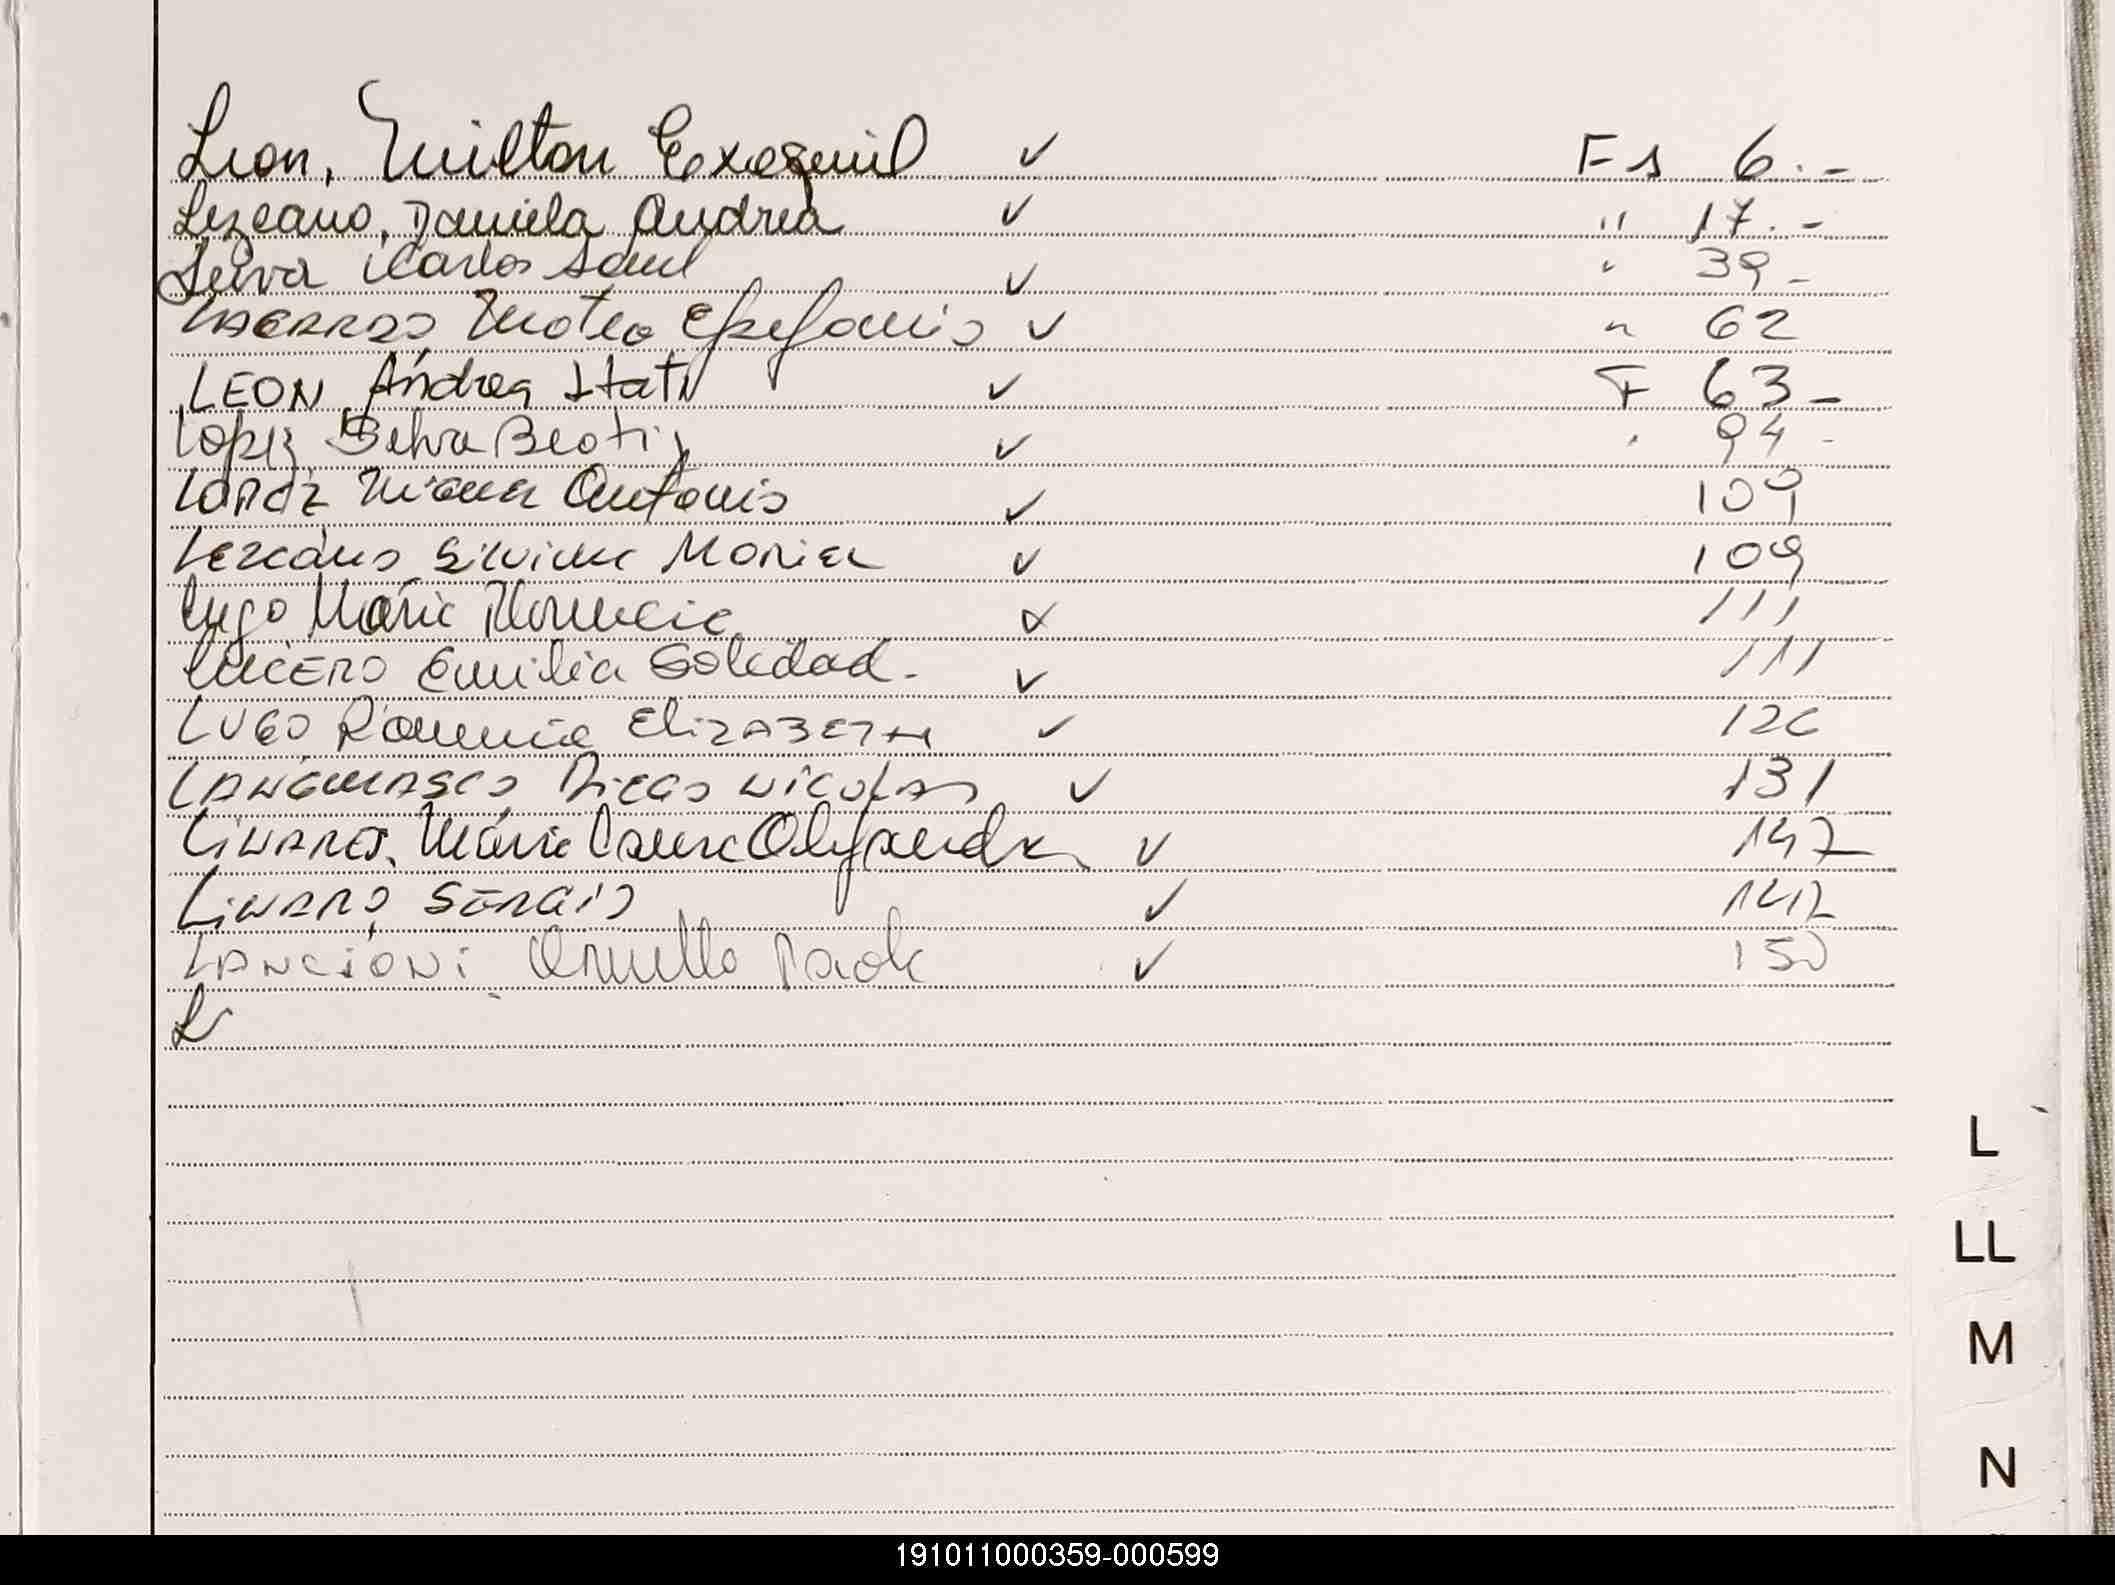 Leon, Milton Exequiel ✓ Fs 6.-
Lezcano, Daniela Andrea ✓ " 17.-
Leiva Carlos Saul ✓ " 39-
Mateo ✓ " 62
LEON Andrea Itati ✓ F 63-
Lopez Beatriz ✓ " 94-
Antonio ✓ 109
Lezcano Silvina ✓ 109
Lugo Maria Florencia ✓ 111
LUCERO Emilia Soledad. ✓ 111
LUGO Romina ElizABETH ✓ 126
Diego Nicolas ✓ 131
Linares, Maria Laura Alejandra ✓ 147
Linares Sergio ✓ 147
LANCIONI Ornella Paola ✓ 150
L
L
LL
M
N
191011000359-000599